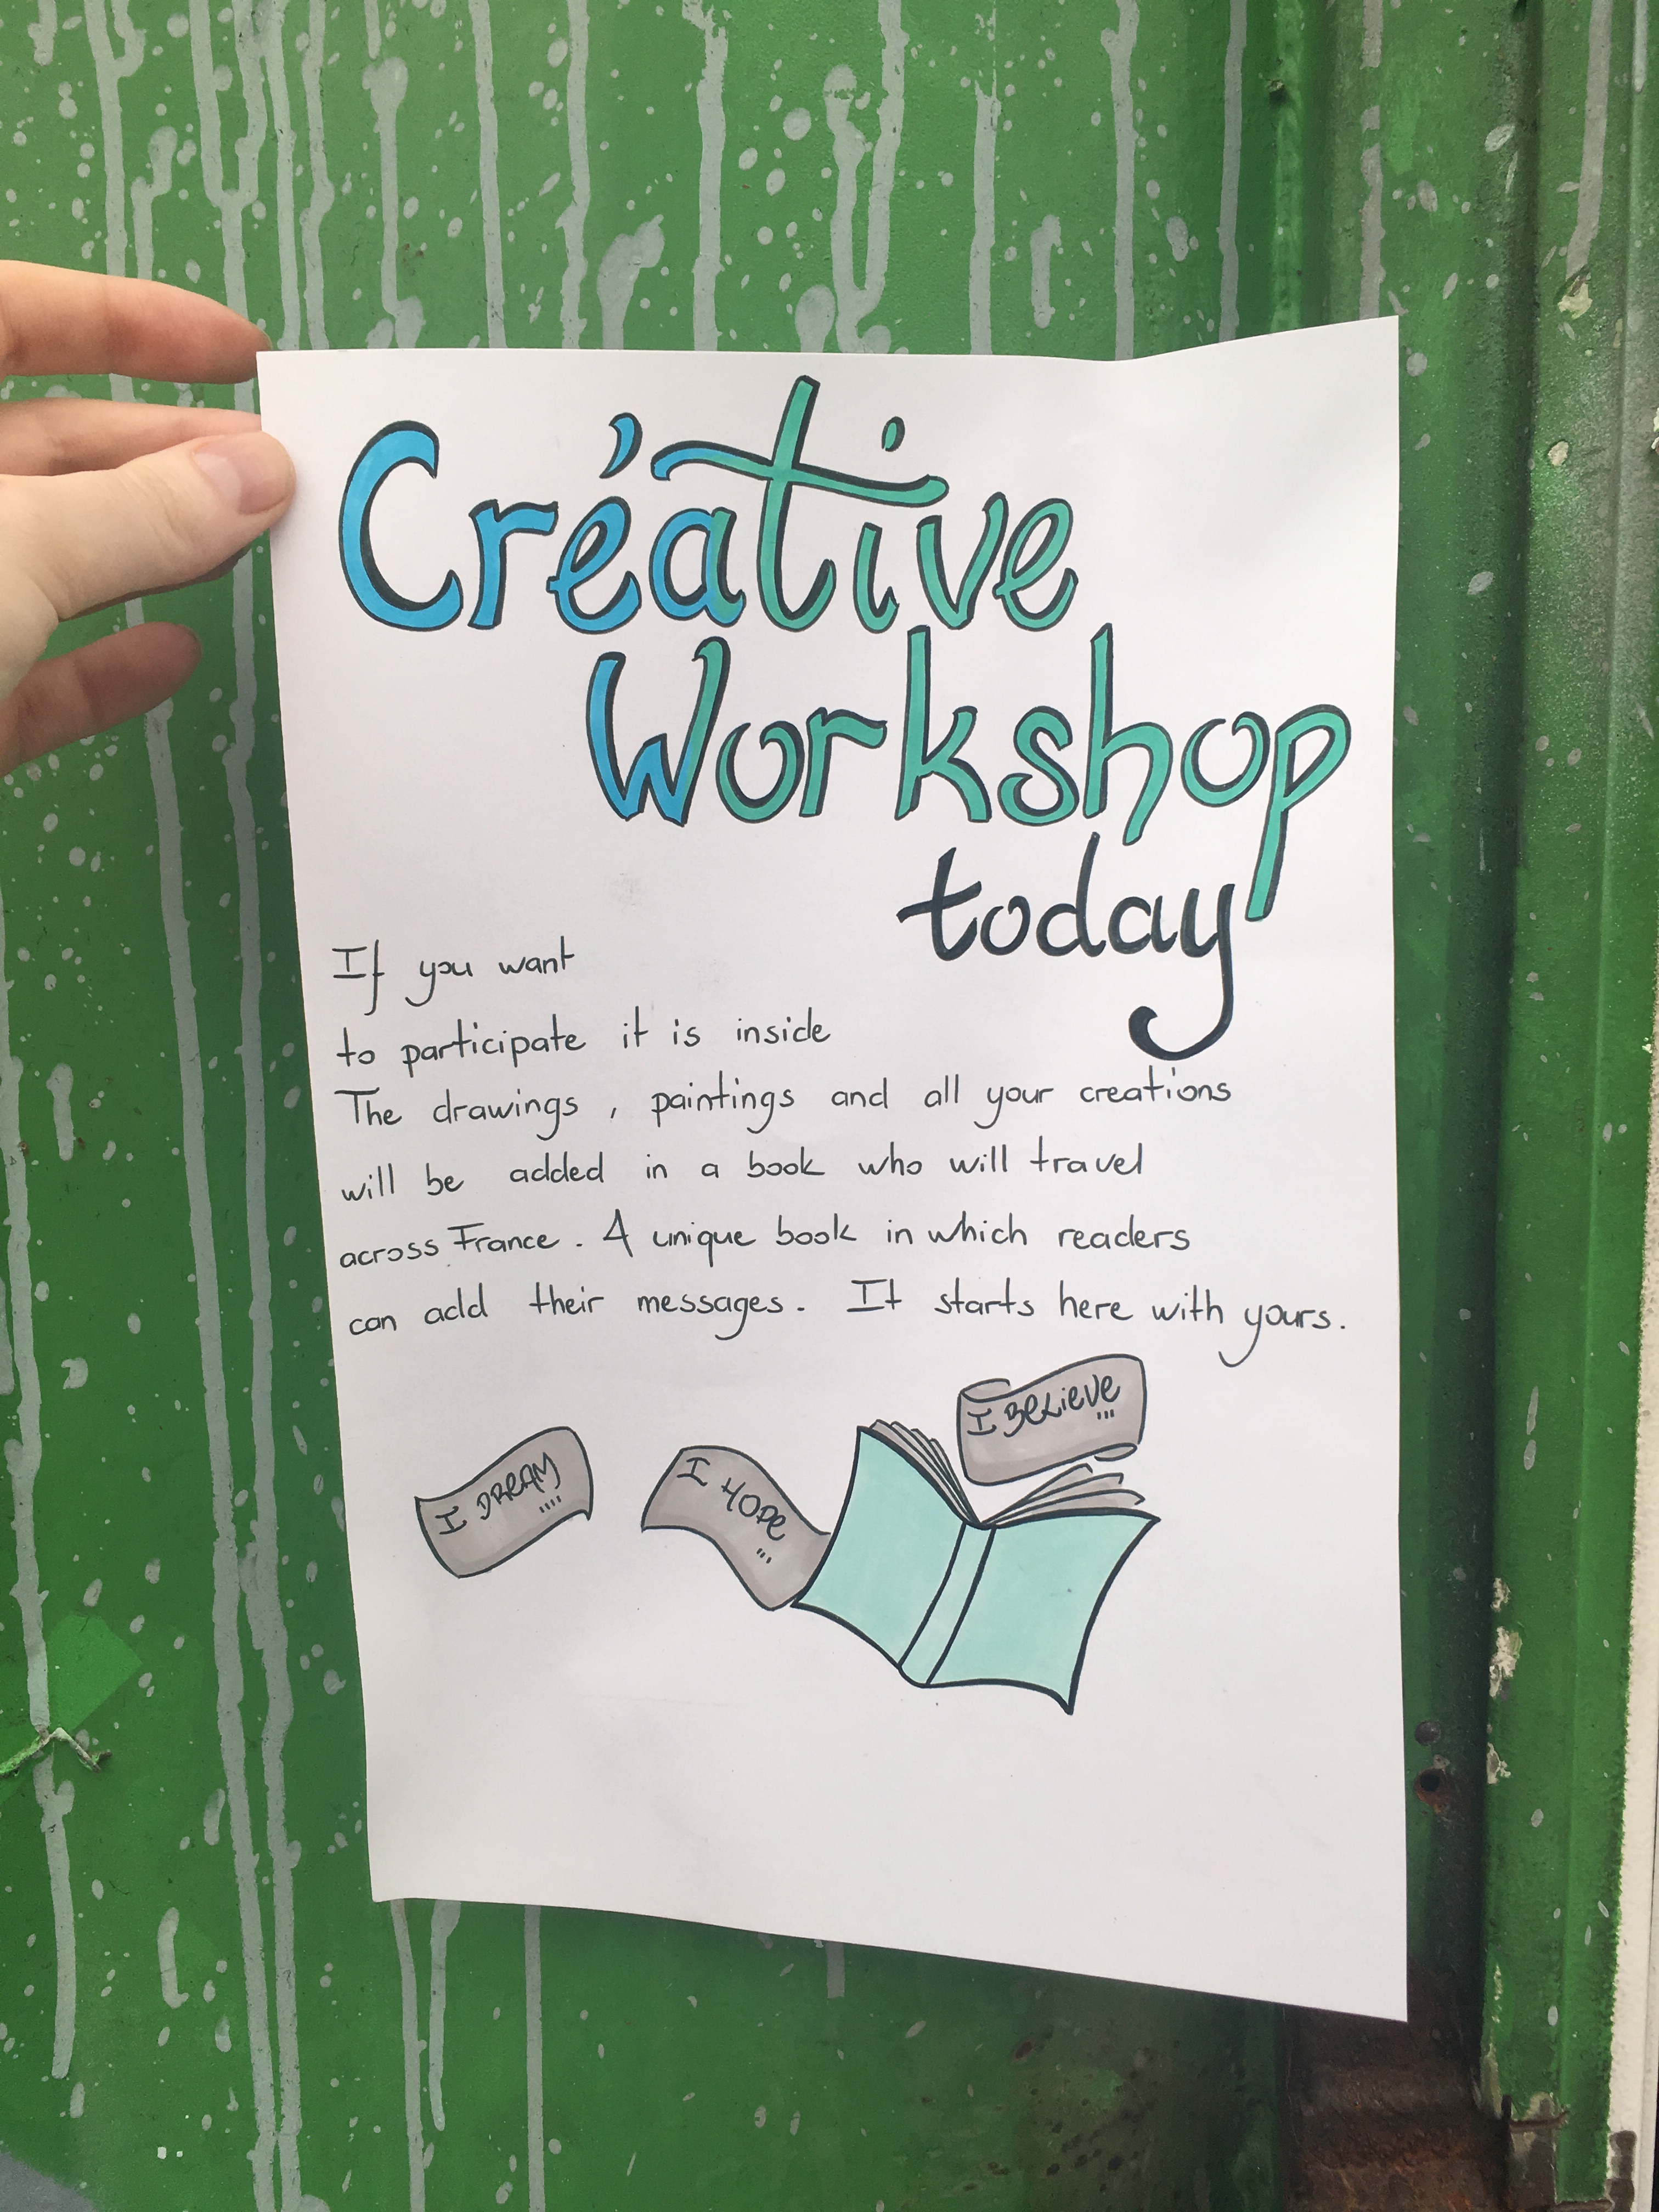 Créative
Workshop
today
If you want
to participate it is inside
The drawings, paintings and all your creations
will be added in a book who will travel
across France. A unique book in which readers
can add their messages. It starts here with yours.
I BELIEVE ...
I DREAM ....
I HOPE ...